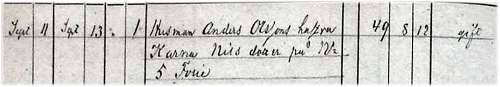 Sept 11 Sept 13 " 1 Husman Anders Olssons hustru 49 8 12 gift
Karna Nils dotter på No
5 Fosie